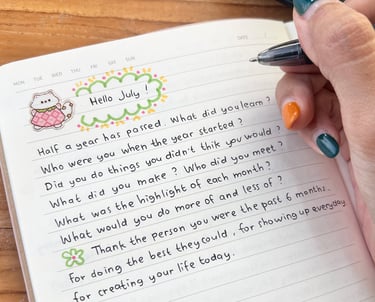 MON TUE WED THU FRI SAT SUN
DATE
Hello July !
Half a year has passed. What did you learn ?
Who were you when the year started ?
Did you do things you didn't thik you would ?
What did you make ? Who did you meet ?
What was the highlight of each month ?
What would you do more of and less of ?
Thank the person you were the past 6 months.
for doing the best they could, for showing up everyday
for creating your life today.